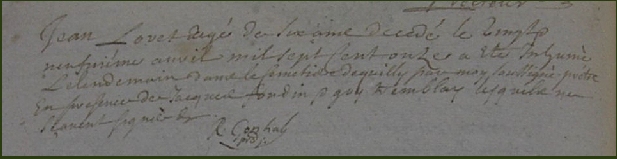 Jean Lovet aagé de six ans decedé le vingt
neufvieme avril mil sept cent onze a ete inhumé
Lelendemain dans le cimetiere par moy soussigné prêtre
En presence de Jacques jardin & guy tremblay lesquels ne
scavent signer
R